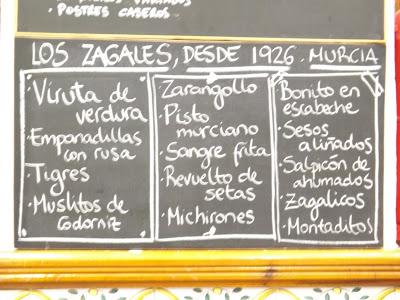 · POSTRES CASEROS
LOS ZAGALES, DESDE 1926. MURCIA
· Viruta de
verdura
· Empanadillas
con rusa
· Tigres
· Muslitos de
codorniz
· Zarangollo
· Pisto
murciano
· Sangre frita
· Revuelto de
setas
· Michirones
· Bonito en
escabeche
· Sesos
aliñados
· Salpicón de
ahumados
· Zagalicos
· Montaditos